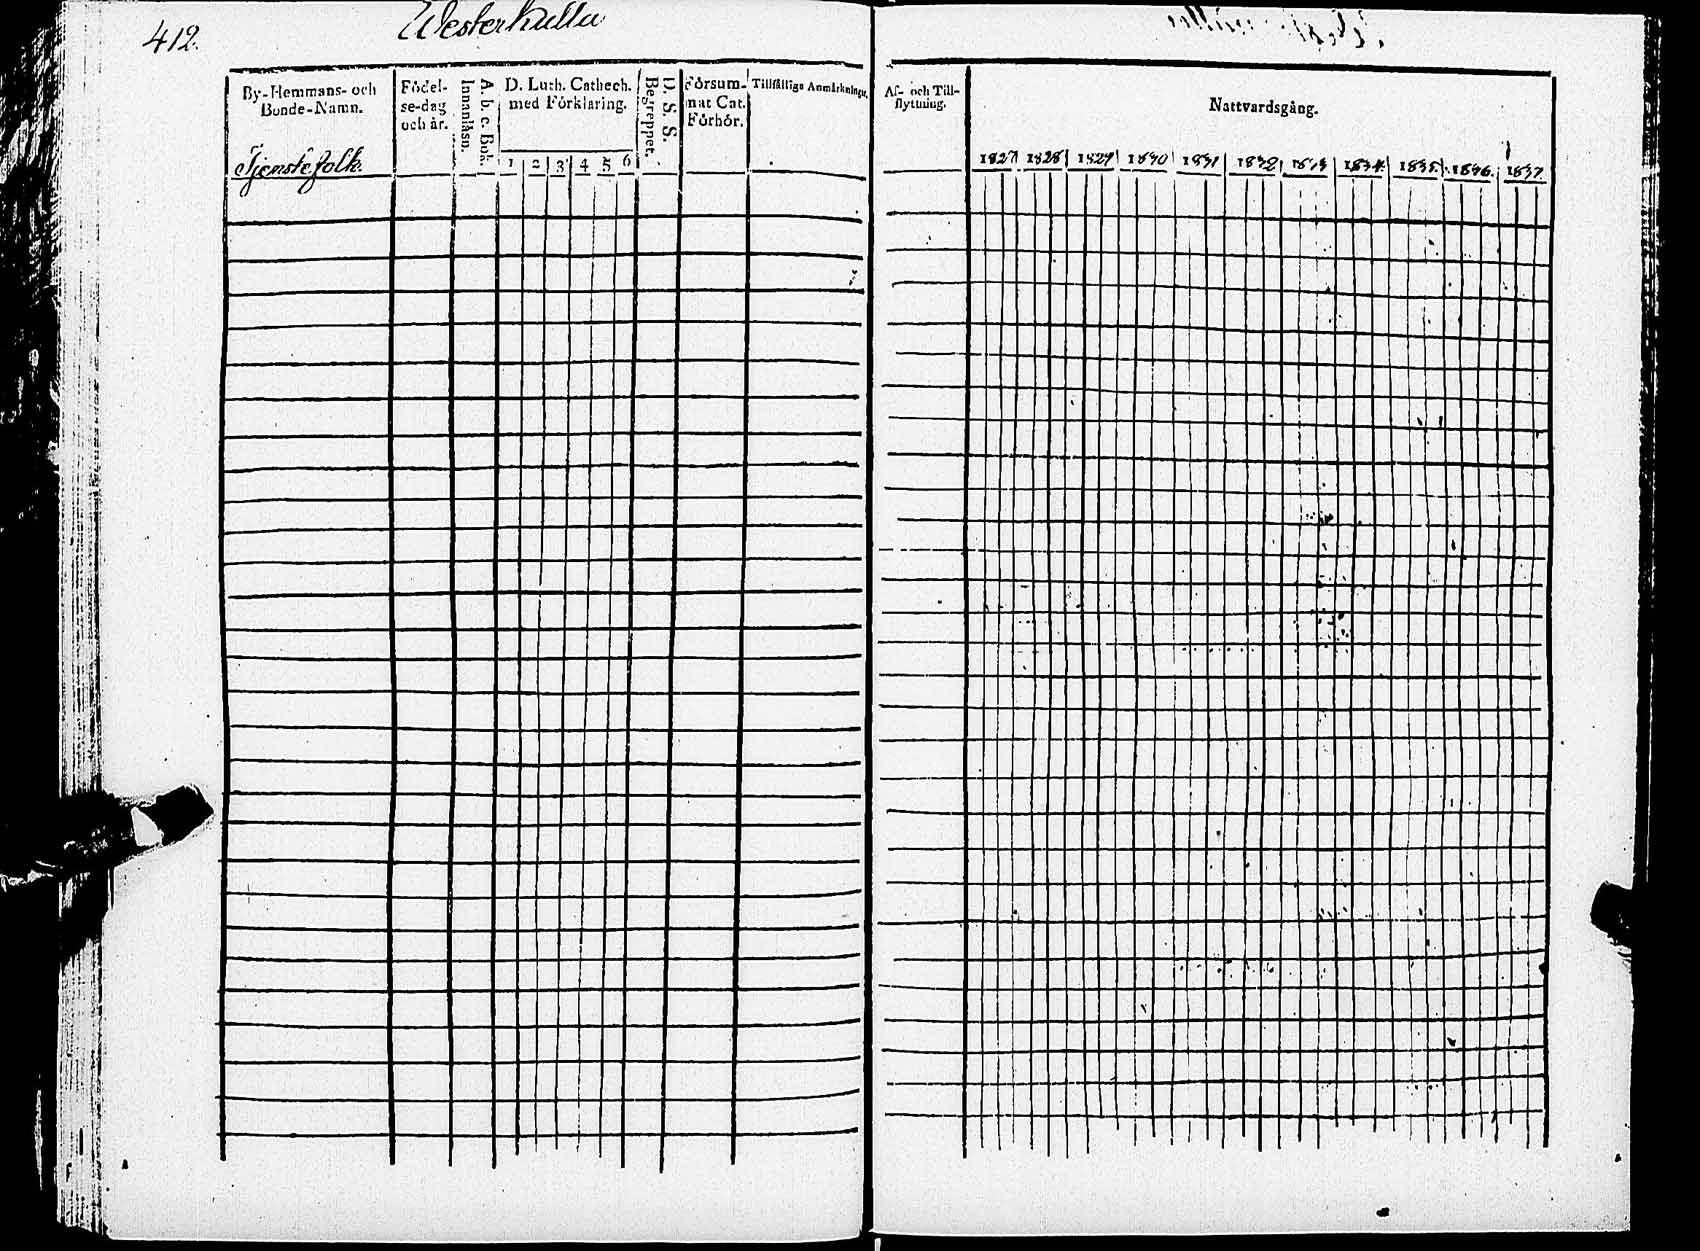 412.
Westerkulla
By-Hemmans- och
Bonde-Namn.
Födel-
se-dag
och år.
A. b. c. Bok.
Innanläsn.
D. Luth. Cathech.
med Förklaring.
1 2 3 4 5 6
D. S. S.
Begreppet.
Försum-
nat Cat.
Förhör.
Tillfällige Anmärkningar.
Tjenstefolk.
Af- och Till-
flyttning.
Nattvardsgång.
1827 1828 1829 1830 1831 1832 1833 1834. 1835. 1836. 1837.